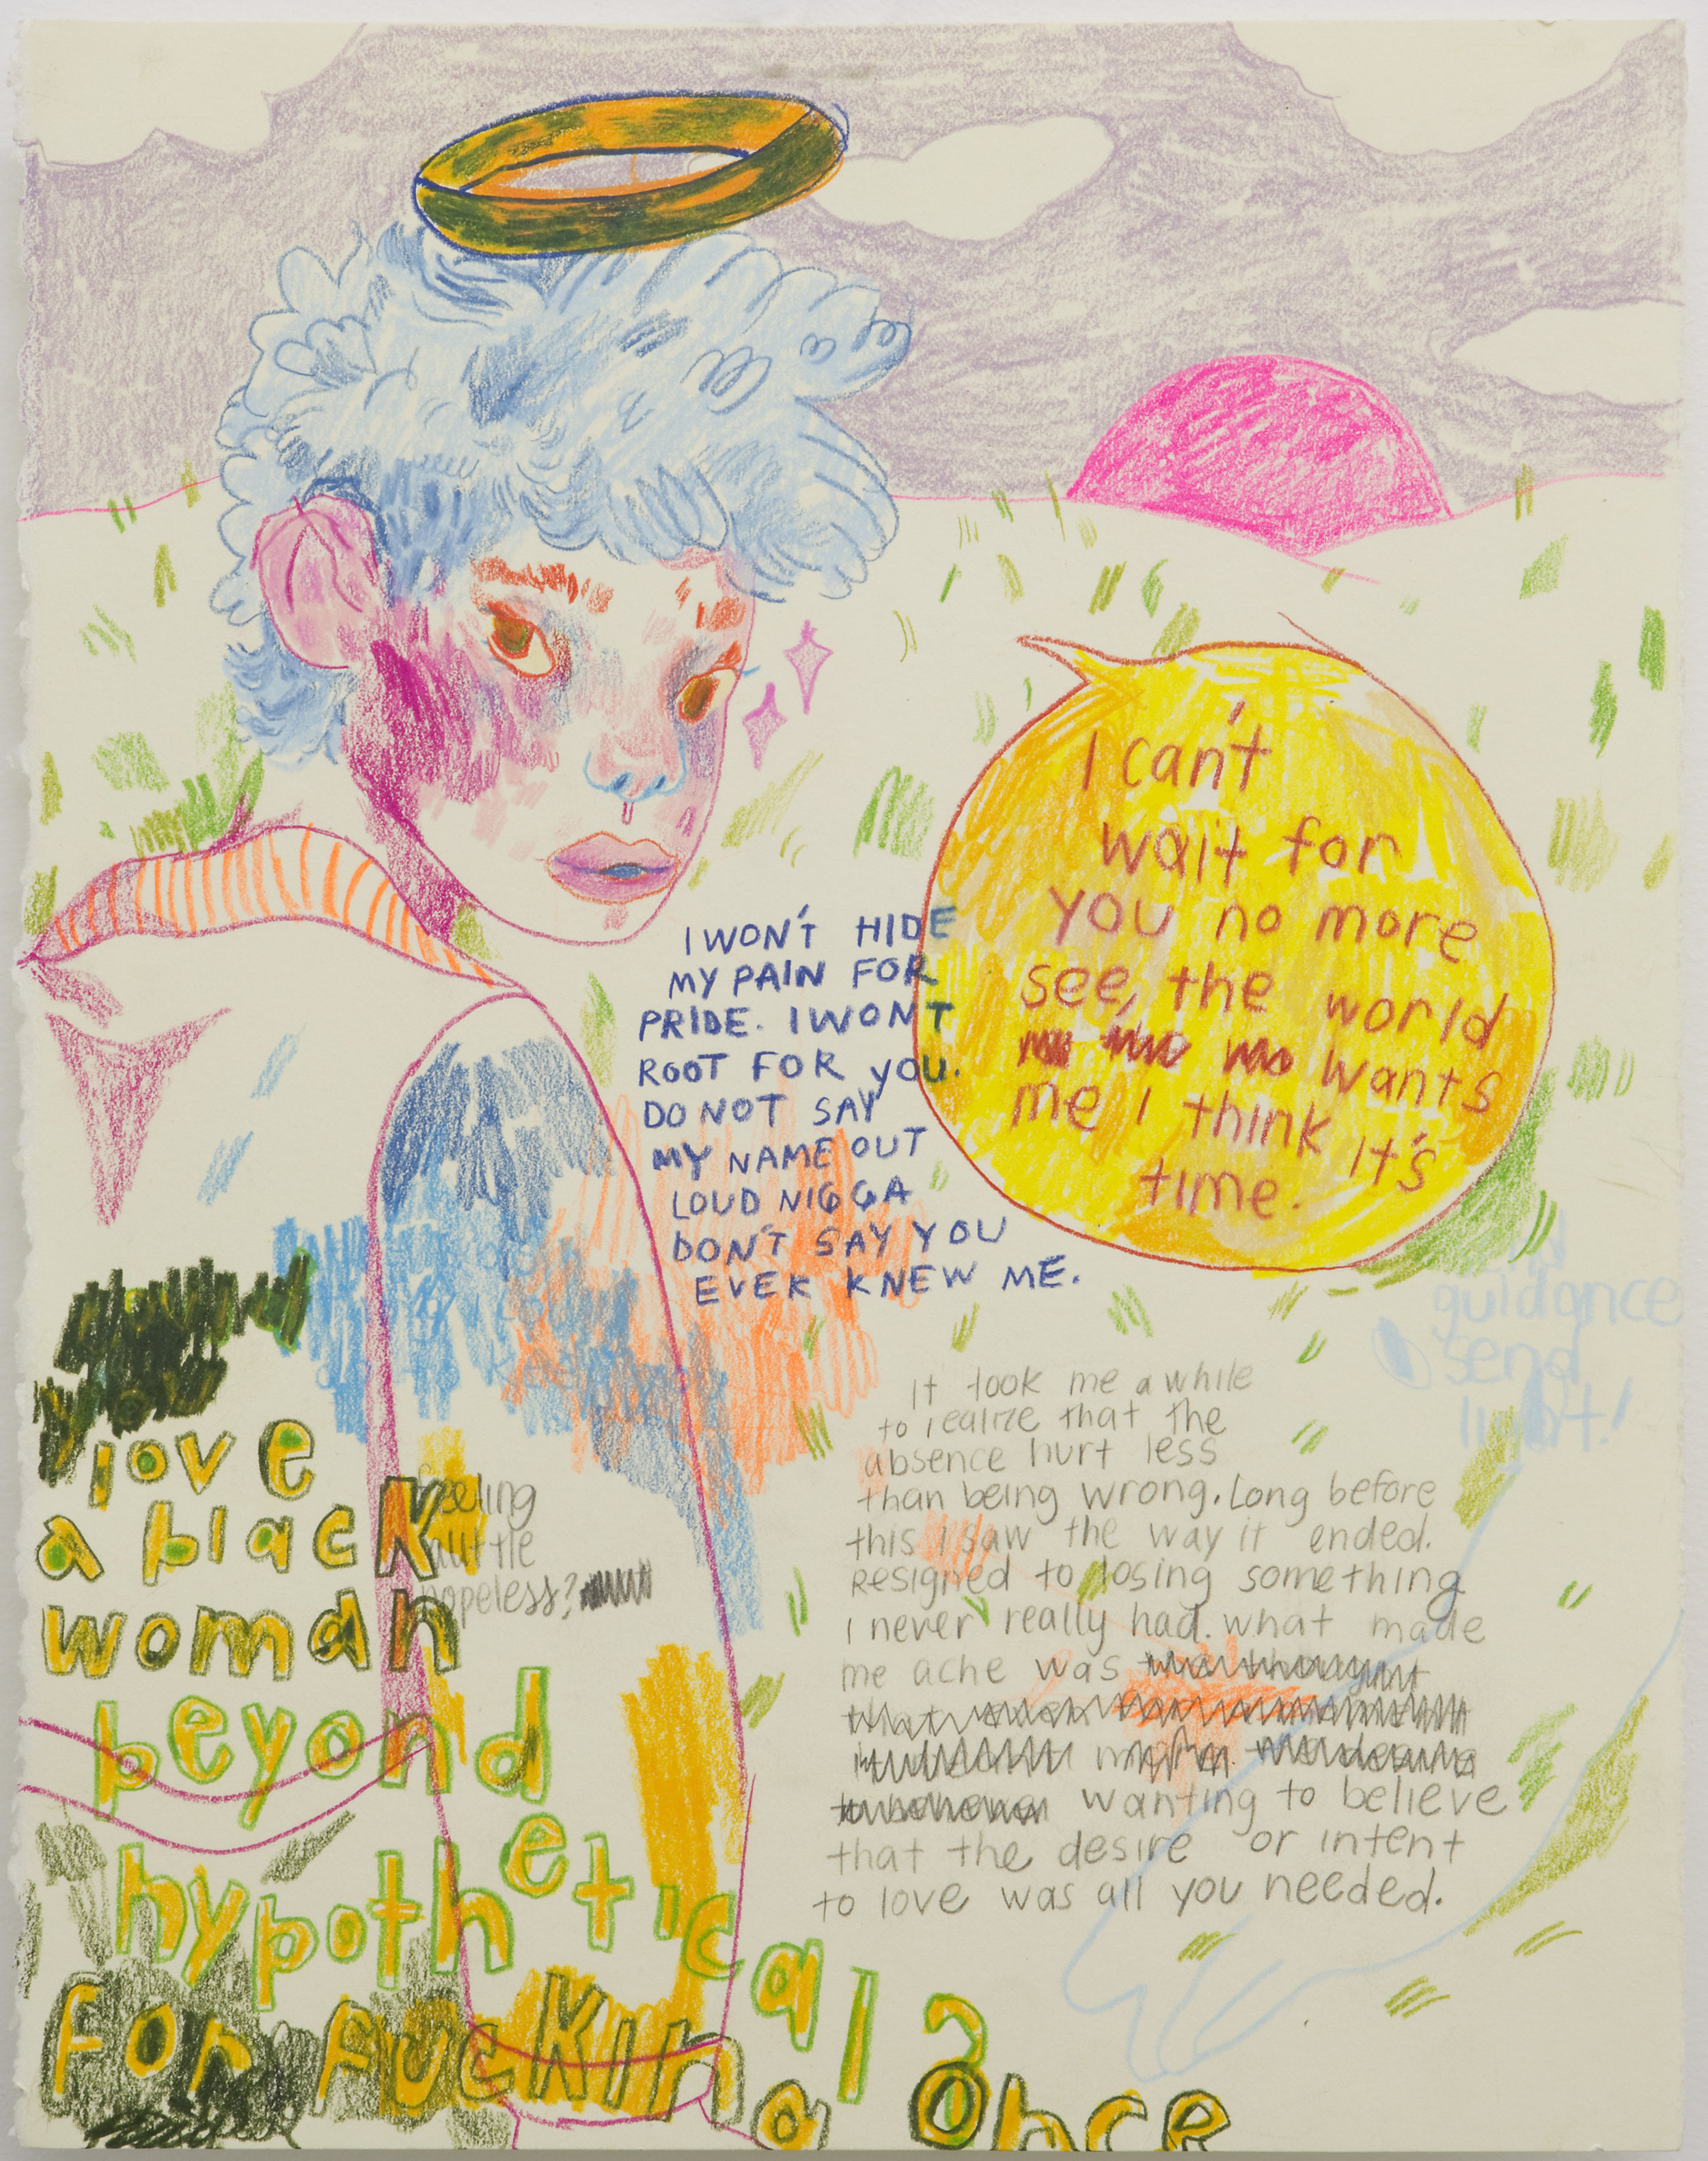 I can't
wait for
you no more
see, the world
wants
me I think it's
time.
I WON'T HIDE
MY PAIN FOR
PRIDE. I WONT
ROOT FOR YOU.
DO NOT SAY
MY NAME OUT
LOUD NIGGA
DON'T SAY YOU
EVER KNEW ME.
guidance
send
light!
It took me a while
to realize that the
absence hurt less
than being wrong. Long before
this I saw the way it ended.
Resigned to losing something
I never really had. what made
me ache was
wanting to believe
that the desire or intent
to love was all you needed.
feeling
a little
hopeless?
love
a black
woman
beyond
hypothetical
for fucking once